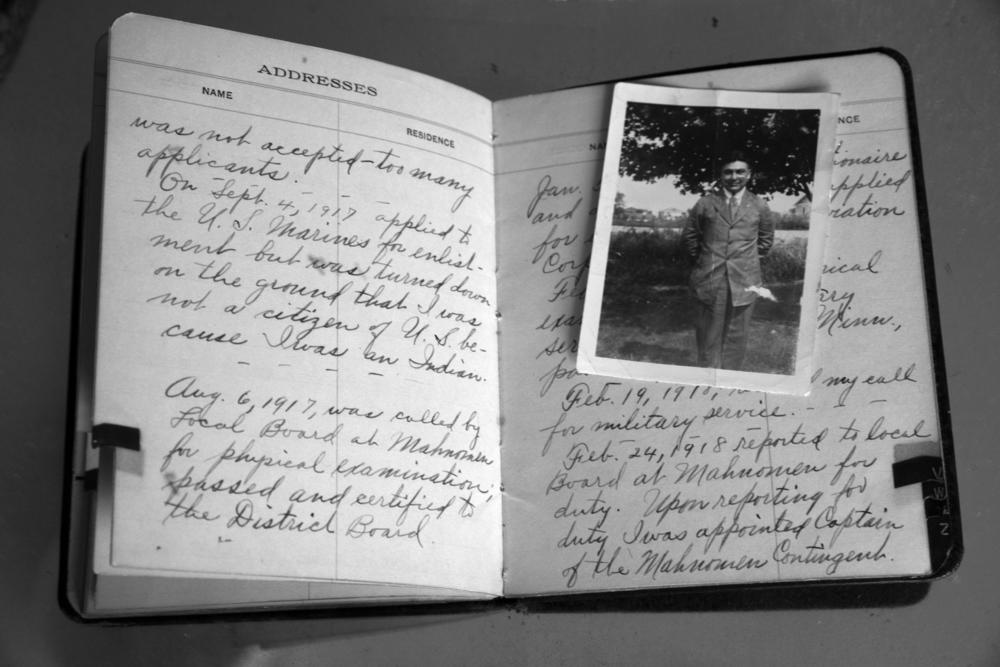 ADDRESSES
NAME RESIDENCE
was not accepted - too many
applicants.
On Sept. 4, 1917 applied to
the U. S. Marines for enlist-
ment but was turned down
on the ground that I was
not a citizen of U. S. be-
cause I was an Indian.
Aug. 6, 1917, was called by
Local Board at Mahnomen
for physical examination;
passed and certified to
the District Board.
NCE
Jan.
and applied
for
Minn.,
Feb. 19, 1918, my call
for military service.
Feb. 24, 1918 reported to local
Board at Mahnomen for
duty. Upon reporting for
duty I was appointed Captain
of the Mahnomen Contingent.